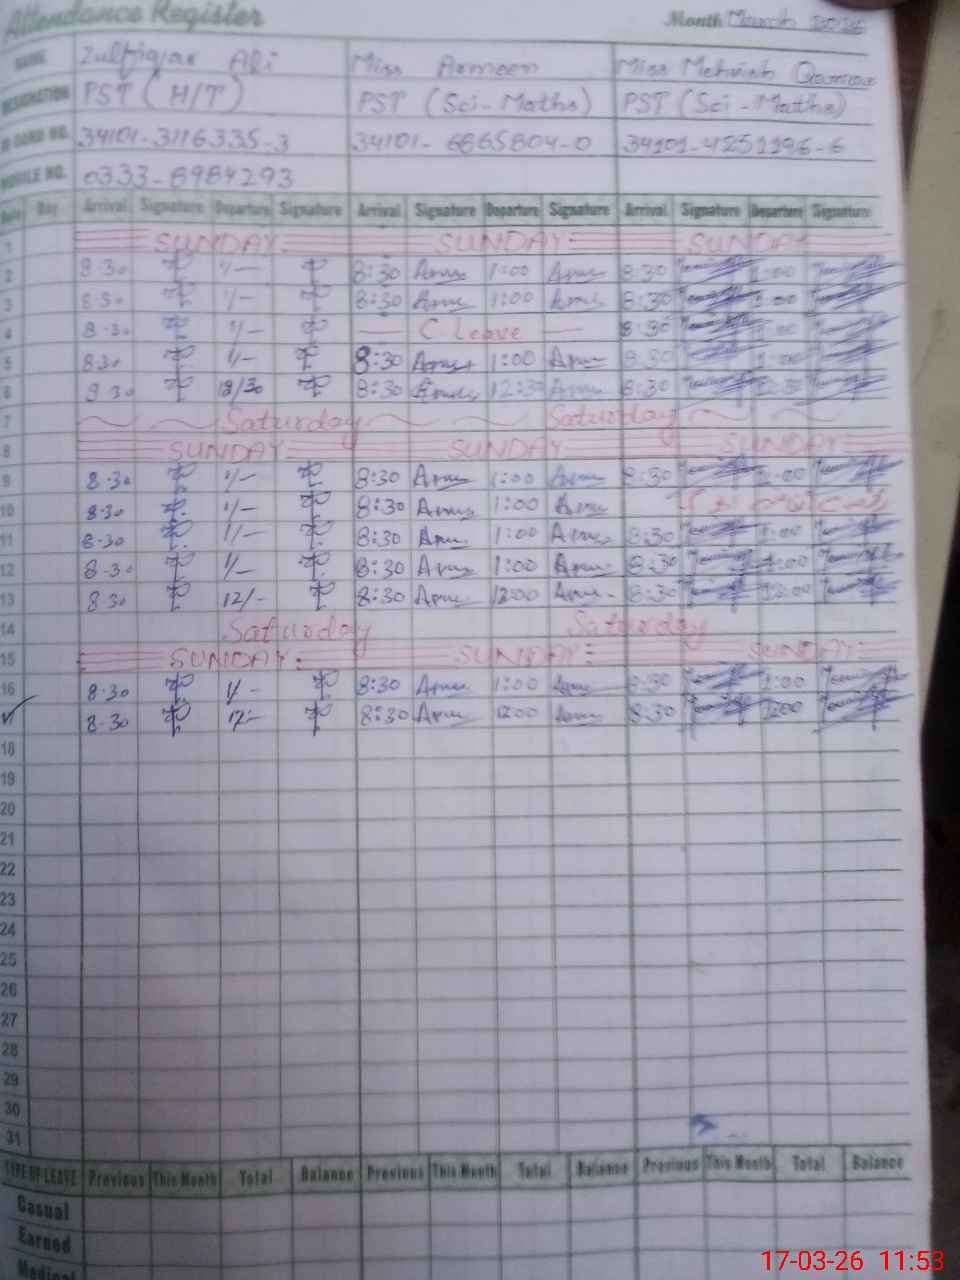 Attendance Register Month March 2026
NAME Zulfiqar Ali Miss Armeen Miss Mehwish Qamar
DESIGNATION PST (H/T) PST (Sci-Maths) PST (Sci-Maths)
ID CARD NO. 34101-3116335-3 34101-6865804-0 34101-4251196-6
MOBILE NO. 0333-8984293
Date Day Arrival Signature Departure Signature Arrival Signature Departure Signature Arrival Signature Departure Signature
1 SUNDAY SUNDAY SUNDAY
2 8:30 1/- 8:30 1:00 8:30 1:00
3 8:30 1/- 8:30 1:00 8:30 1:00
4 8:30 1/- C Leave 8:30 1:00
5 8:30 1/- 8:30 1:00 8:30 1:00
6 8:30 12/30 8:30 12:30 8:30 12:30
7 Saturday Saturday
8 SUNDAY SUNDAY SUNDAY
9 8:30 1/- 8:30 1:00 8:30 1:00
10 8:30 1/- 8:30 1:00
11 8:30 1/- 8:30 1:00 8:30 1:00
12 8:30 1/- 8:30 1:00 8:30 1:00
13 8:30 12/- 8:30 12:00 8:30 12:00
14 Saturday Saturday
15 SUNDAY SUNDAY SUNDAY
16 8:30 1/- 8:30 1:00 8:30 1:00
8:30 12/- 8:30 1200 8:30 1200
18
19
20
21
22
23
24
25
26
27
28
29
30
31
TYPE OF LEAVE Previous This Month Total Balance Previous This Month Total Balance Previous This Month Total Balance
Casual
Earned
Medical
17-03-26 11:53